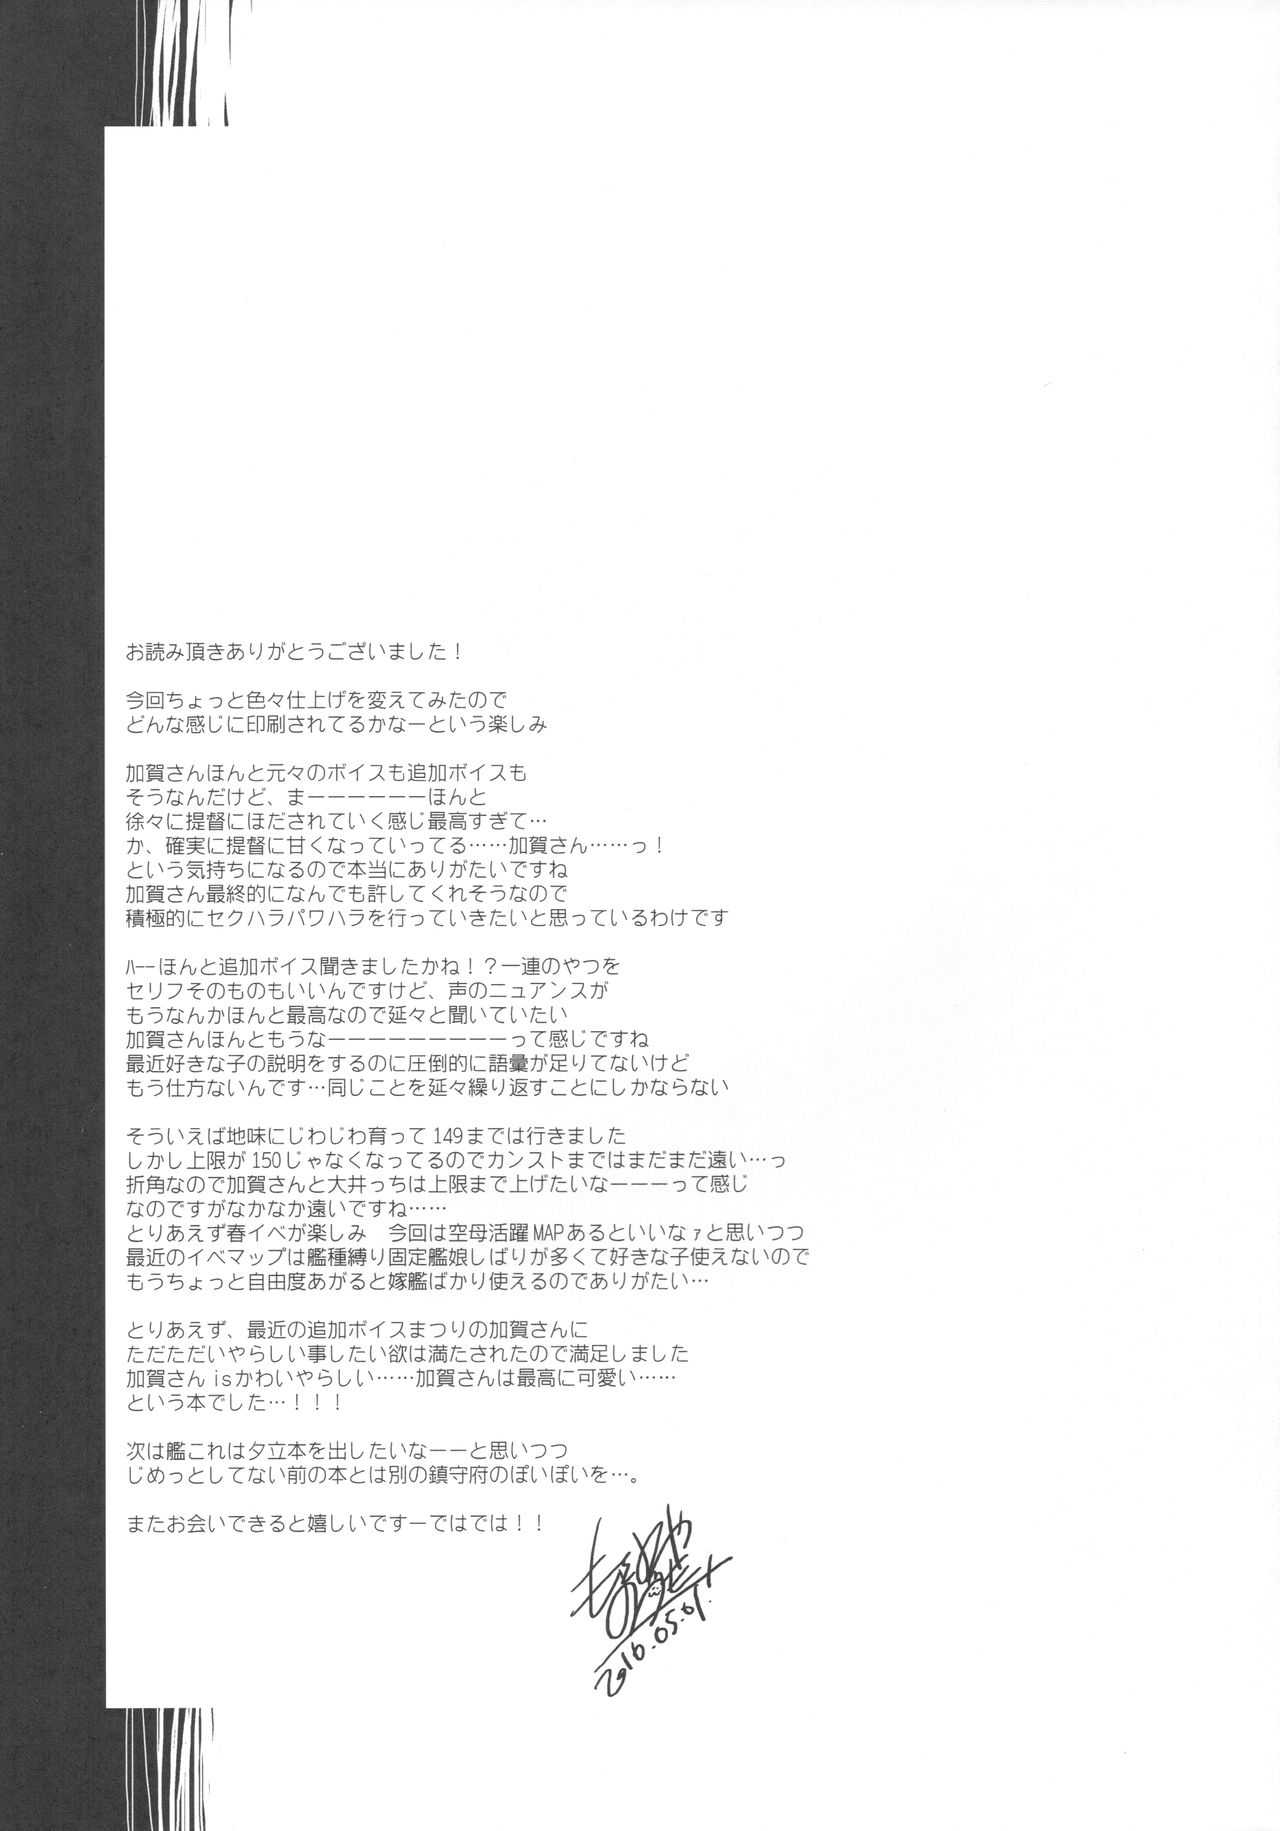 お読み頂きありがとうございました！
今回ちょっと色々仕上げを変えてみたので
どんな感じに印刷されてるかなーという楽しみ
加賀さんほんと元々のボイスも追加ボイスも
そうなんだけど、まーーーーーーほんと
徐々に提督にほだされていく感じ最高すぎて…
か、確実に提督に甘くなっていってる……加賀さん……っ！
という気持ちになるので本当にありがたいですね
加賀さん最終的になんでも許してくれそうなので
積極的にセクハラパワハラを行っていきたいと思っているわけです
ﾊｰｰほんと追加ボイス聞きましたかね！？一連のやつを
セリフそのものもいいんですけど、声のニュアンスが
もうなんかほんと最高なので延々と聞いていたい
加賀さんほんともうなーーーーーーーーーって感じですね
最近好きな子の説明をするのに圧倒的に語彙が足りてないけど
もう仕方ないんです…同じことを延々繰り返すことにしかならない
そういえば地味にじわじわ育って149までは行きました
しかし上限が150じゃなくなってるのでカンストまではまだまだ遠い…っ
折角なので加賀さんと大井っちは上限まで上げたいなーーーって感じ
なのですがなかなか遠いですね……
とりあえず春イベが楽しみ　今回は空母活躍MAPあるといいなァと思いつつ
最近のイベマップは艦種縛り固定艦娘しばりが多くて好きな子使えないので
もうちょっと自由度あがると嫁艦ばかり使えるのでありがたい…
とりあえず、最近の追加ボイスまつりの加賀さんに
ただただいやらしい事したい欲は満たされたので満足しました
加賀さんisかわいやらしい……加賀さんは最高に可愛い……
という本でした…！！！
次は艦これは夕立本を出したいなーーと思いつつ
じめっとしてない前の本とは別の鎮守府のぽいぽいを…。
またお会いできると嬉しいですーではでは！！
2016.05.01.